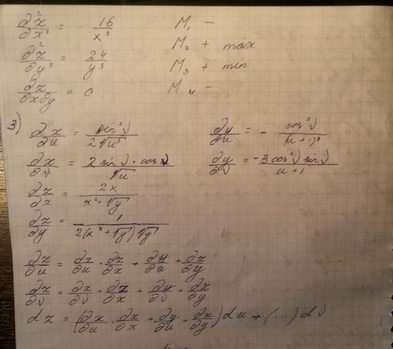 ∂²z/∂x² = - 16/x³   M₁ -
∂²z/∂y² = 24/y³   M₂ + max
M₃ + min
∂z/∂x∂y = 0   M₄ -
3) ∂x/∂u = sin²v/2√u   ∂y/∂u = - cos³v/(u+1)²
∂x/∂v = 2 sin v · cos v √u   ∂y/∂v = -3cos²v sin v/u+1
∂z/∂x = 2x/x²+√y
∂z/∂y = 1/2(x²+√y)√y
∂z/∂u = ∂x/∂u · ∂z/∂x + ∂y/∂u · ∂z/∂y
∂z/∂v = ∂x/∂v · ∂z/∂x + ∂y/∂v · ∂z/∂y
dz = (∂x/∂u · ∂z/∂x + ∂y/∂u · ∂z/∂y) du + (...) dv